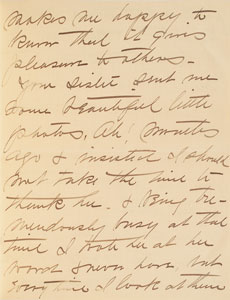 makes me happy to
know that it gives
pleasure to others -
Your sister sent me
some beautiful little
photos, Ah! months
ago & insisted I should
not take the time to
thank her. & being tre-
mendously busy at that
time I took her at her
word & never have, but
everytime I look at them